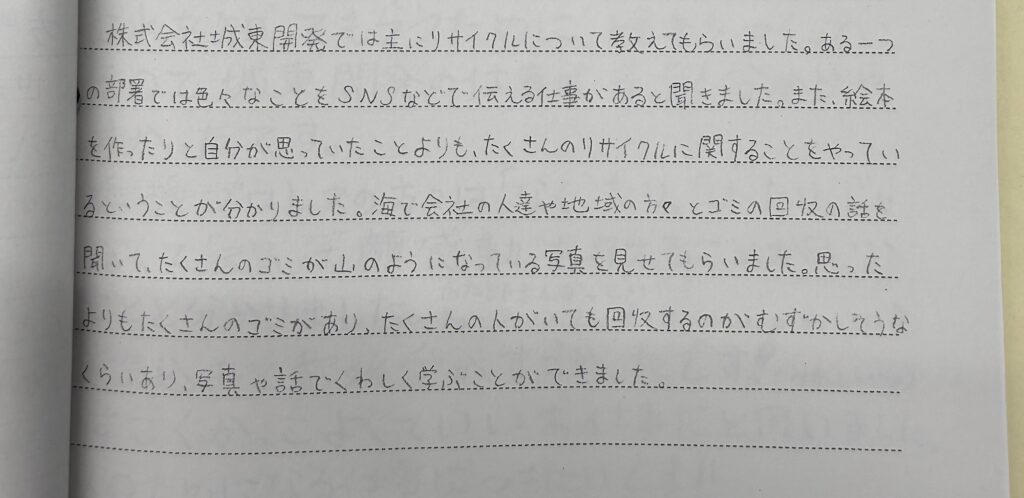 株式会社城東開発では主にリサイクルについて教えてもらいました。ある一つ
の部署では色々なことをSNSなどで伝える仕事があると聞きました。また、絵本
を作ったりと自分が思っていたことよりも、たくさんのリサイクルに関することをやってい
るということが分かりました。海で会社の人達や地域の方々とゴミの回収の話を
聞いて、たくさんのゴミが山のようになっている写真を見せてもらいました。思った
よりもたくさんのゴミがあり、たくさんの人がいても回収するのがむずかしそうな
くらいあり、写真や話でくわしく学ぶことができました。